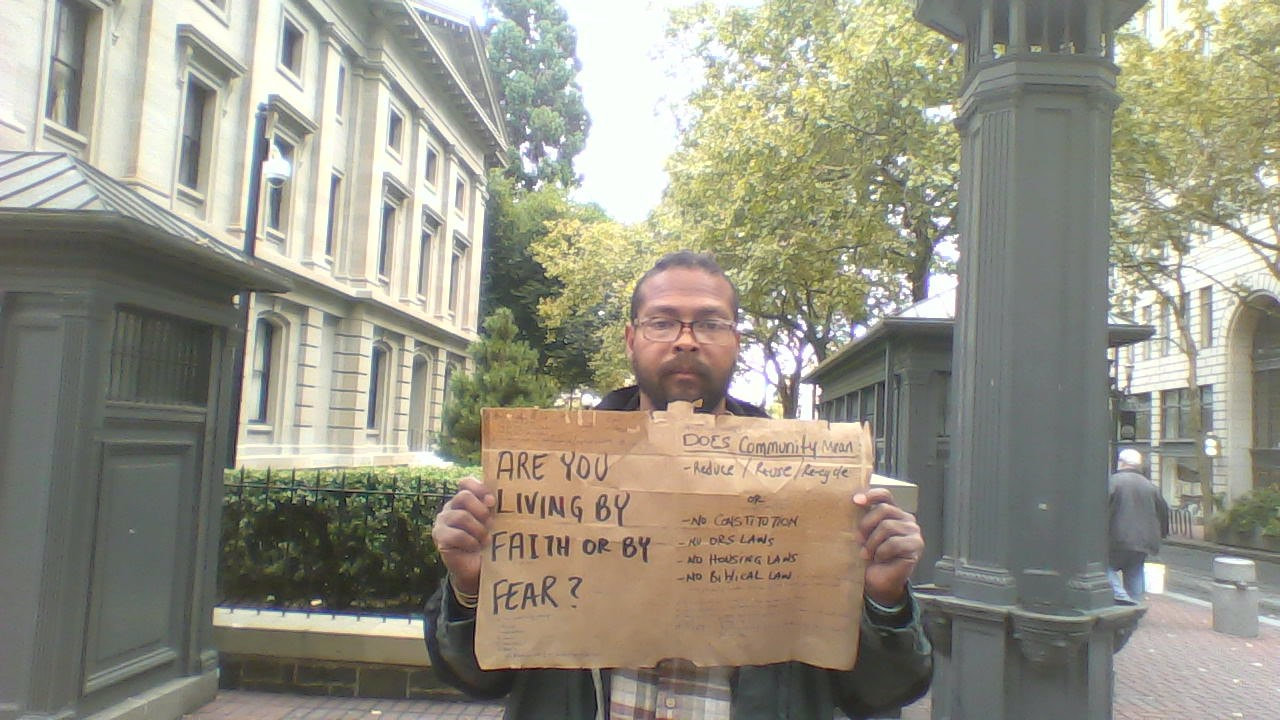 ARE YOU
LIVING BY
FAITH OR BY
FEAR?
DOES Community Mean:
-Reduce / Reuse / Recycle
OR
-NO CONSTITUTION
-NO ORS LAWS
-NO HOUSING LAWS
-NO BIBLICAL LAW